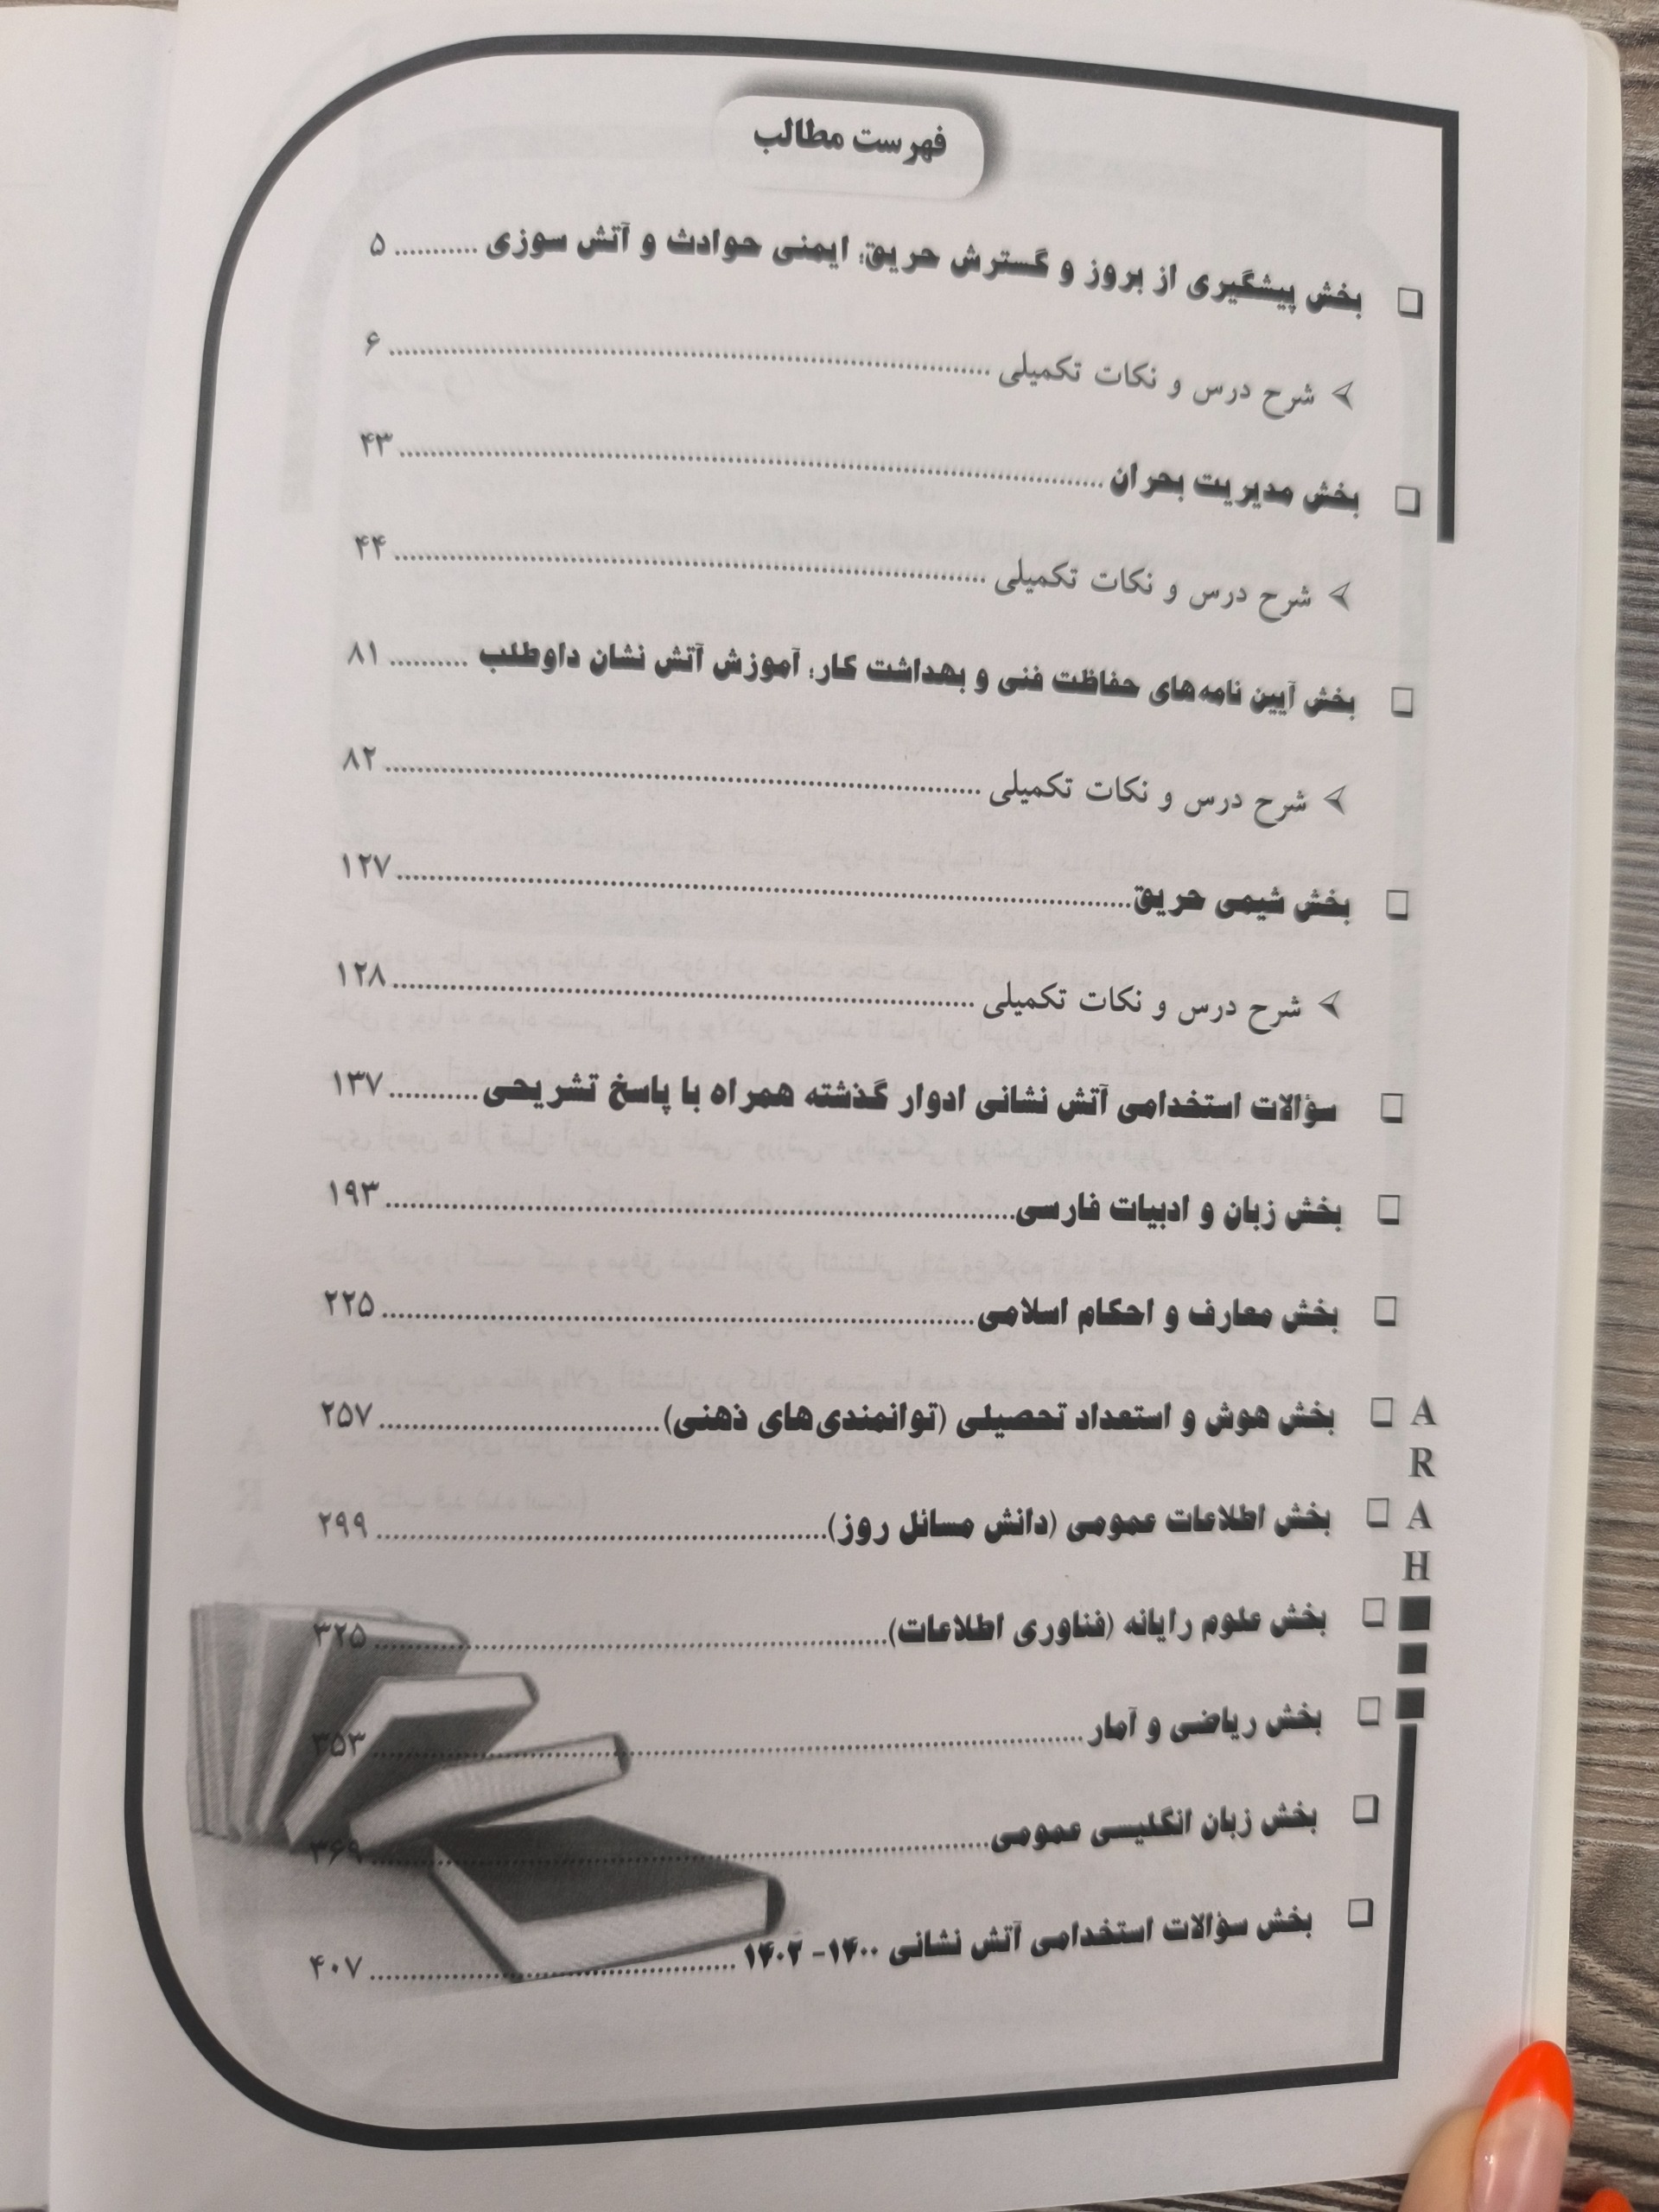 فهرست مطالب
❑ بخش پیشگیری از بروز و گسترش حریق، ایمنی حوادث و آتش سوزی ........... ۵
➢ شرح درس و نکات تکمیلی ........... ۶
❑ بخش مدیریت بحران ........... ۴۳
➢ شرح درس و نکات تکمیلی ........... ۴۴
❑ بخش آیین نامه‌های حفاظت فنی و بهداشت کار؛ آموزش آتش نشان داوطلب .......... ۸۱
➢ شرح درس و نکات تکمیلی ........... ۸۲
❑ بخش شیمی حریق ........... ۱۲۷
➢ شرح درس و نکات تکمیلی ........... ۱۲۸
❑ سؤالات استخدامی آتش نشانی ادوار گذشته همراه با پاسخ تشریحی ........... ۱۳۷
❑ بخش زبان و ادبیات فارسی ........... ۱۹۳
❑ بخش معارف و احکام اسلامی ........... ۲۲۵
❑ بخش هوش و استعداد تحصیلی (توانمندی‌های ذهنی) ........... ۲۵۷
❑ بخش اطلاعات عمومی (دانش مسائل روز) ........... ۲۹۹
❑ بخش علوم رایانه (فناوری اطلاعات) ........... ۳۲۵
❑ بخش ریاضی و آمار ........... ۳۵۳
❑ بخش زبان انگلیسی عمومی ........... ۳۶۹
❑ بخش سؤالات استخدامی آتش نشانی ۱۴۰۰- ۱۴۰۲ ........... ۴۰۷
A
R
A
H